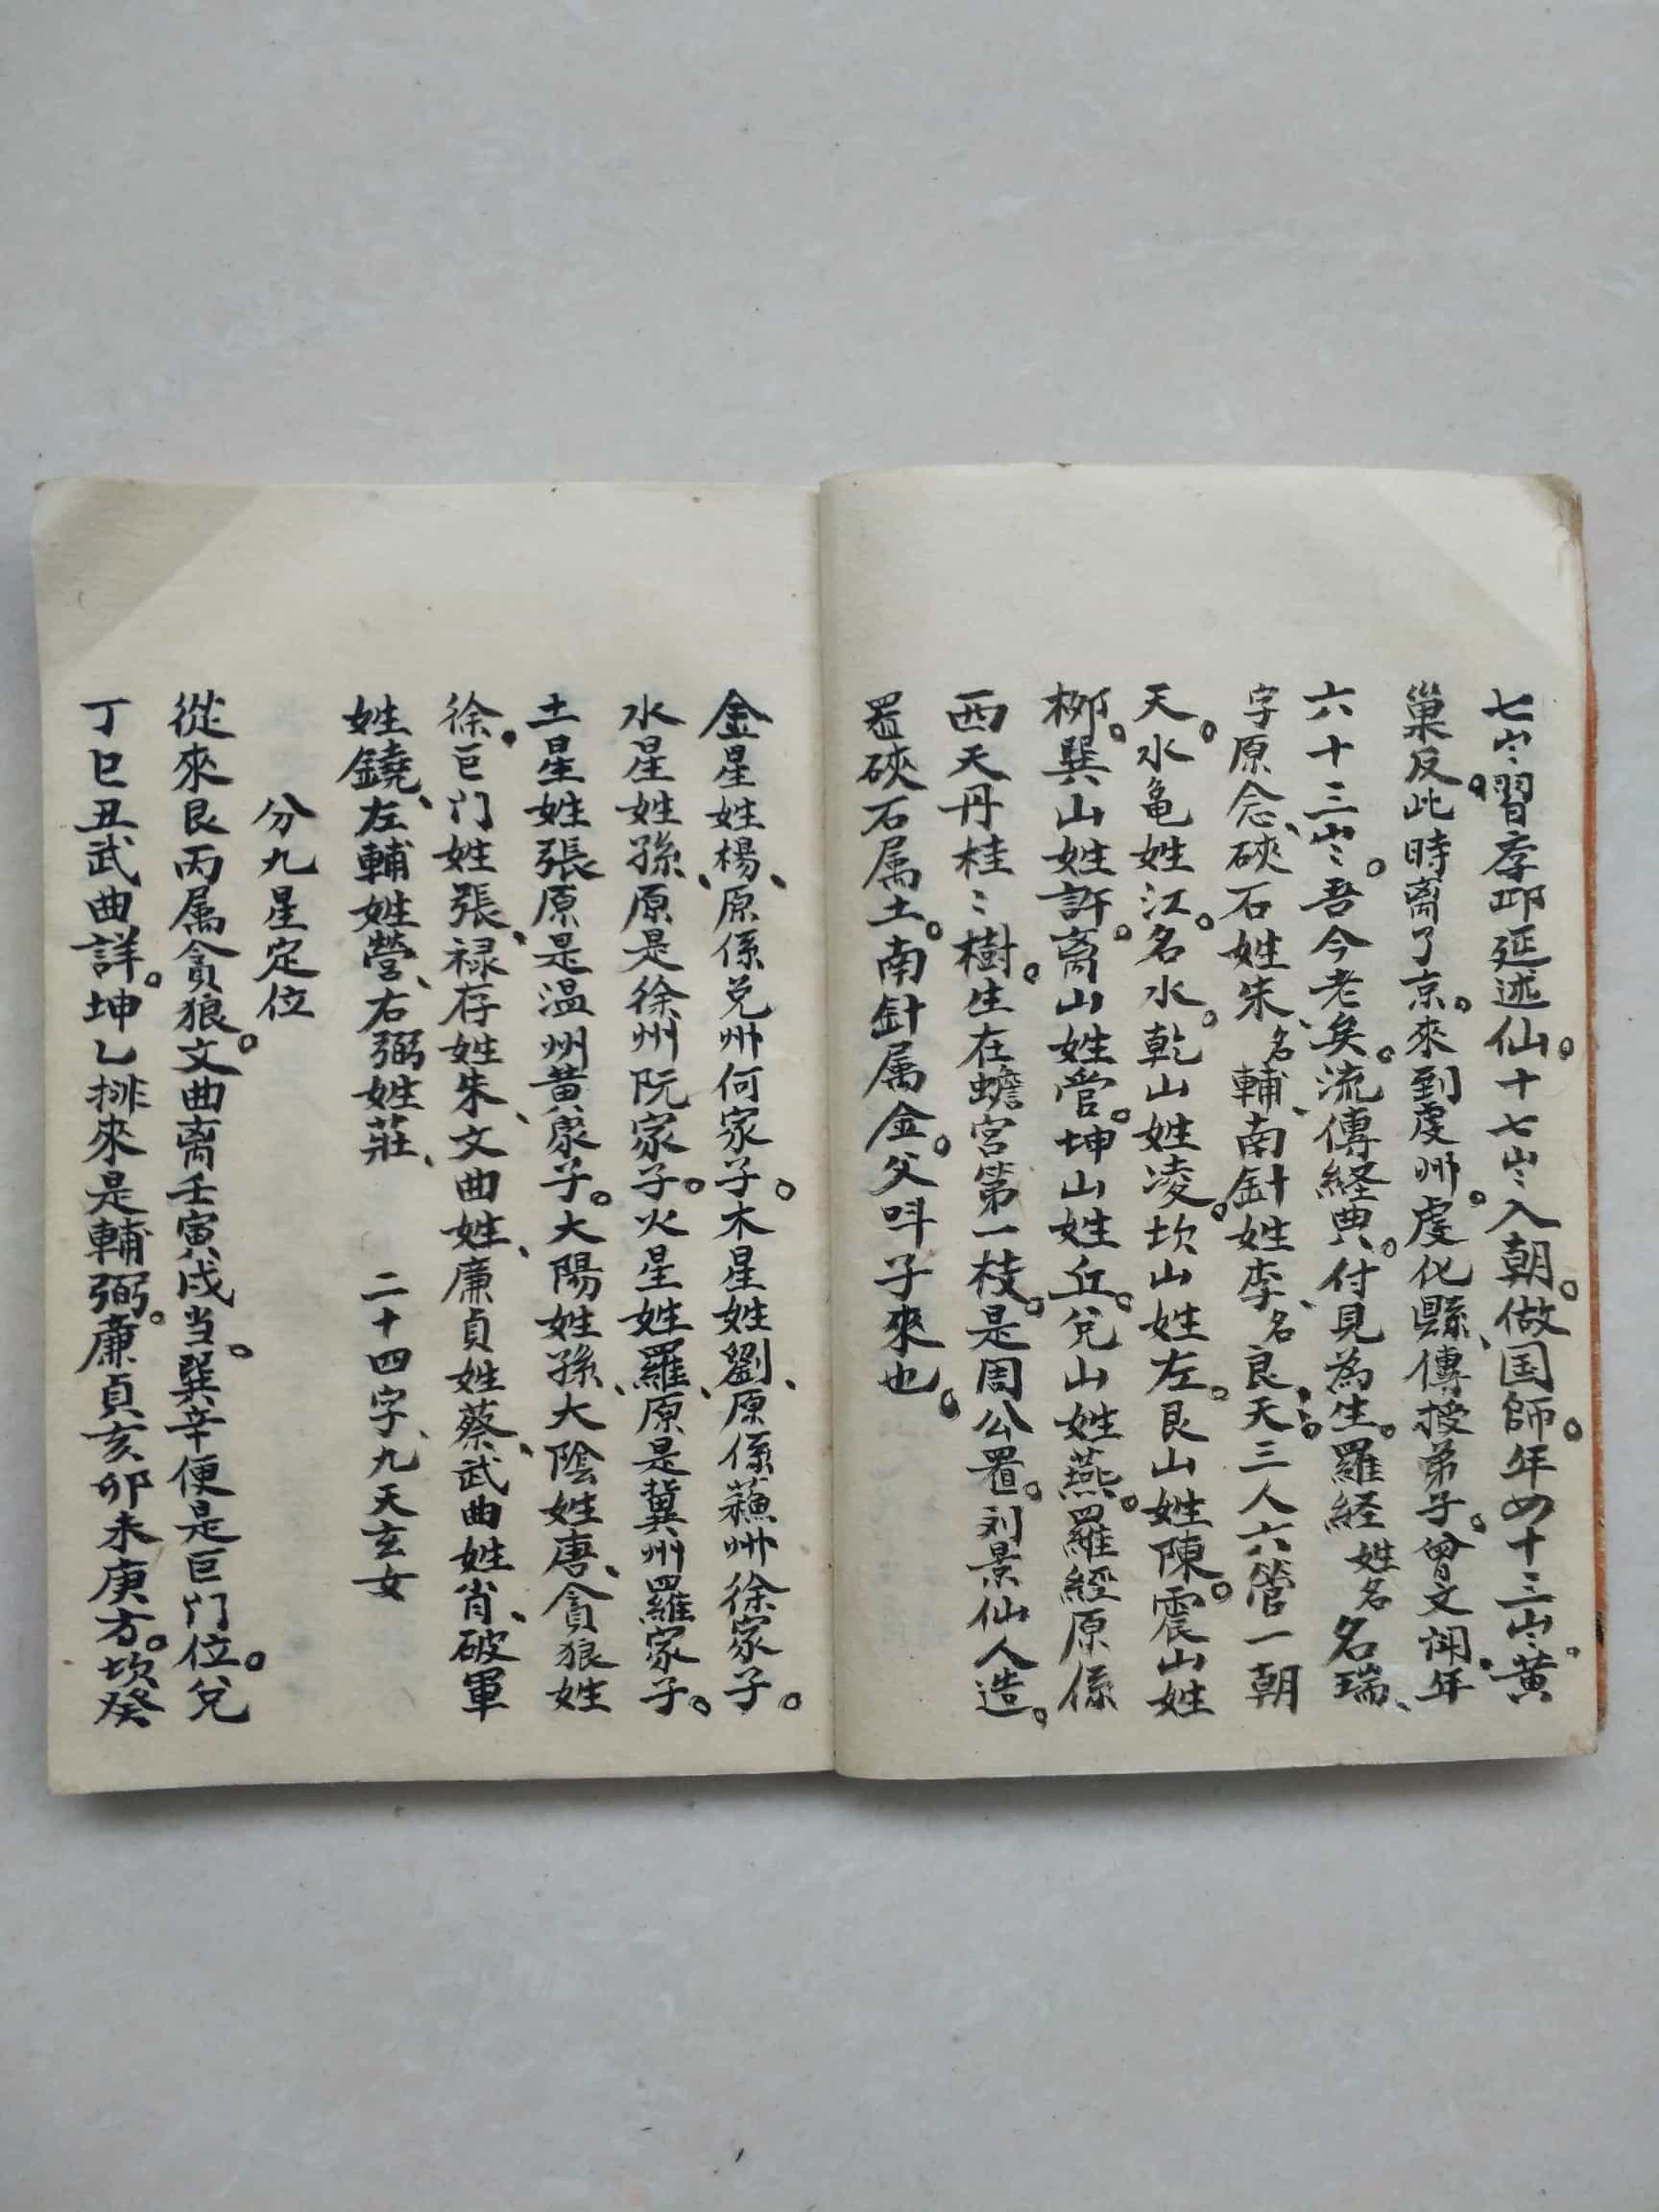 七岁習李邱延述仙。十七岁入朝。做国師。年四十三岁。黄
巢反。此時离了京。來到虔州。虔化縣、傳授弟子。曾文辿。年
六十三岁。吾今老矣。流傳経典。付見為生。羅経姓名名瑞、
字原念、硤石姓朱、名輔、南針姓李、名良天、三人六管一朝
天。水亀姓江。名水。乾山姓凌。坎山姓左。艮山姓陳。震山姓
柳。巽山姓許。离山姓管。坤山姓丘。兌山姓燕。羅經原係
西天丹桂〻樹。生在蟾宮第一枝。是周公置。刘景仙人造。
置硤石属土。南針属金。父呌子來也。
金星姓楊、原係兌州何家子。木星姓劉、原係蘓州徐家子。
水星姓孫、原是徐州阮家子。火星姓羅、原是冀州羅家子。
土星姓張原是温州黄家子。太陽姓孫、太陰姓唐、貪狼姓
徐。巨门姓張、禄存姓朱、文曲姓、廉貞姓蔡、武曲姓肖、破軍
姓鐃、左輔姓營、右弼姓莊、 二十四字、九天玄女
分九星定位
從來艮丙属貪狼。文曲离壬寅戌当。巽辛便是巨门位。兌
丁巳丑武曲詳。坤乙排來是輔弼。廉貞亥卯未庚方。坎癸